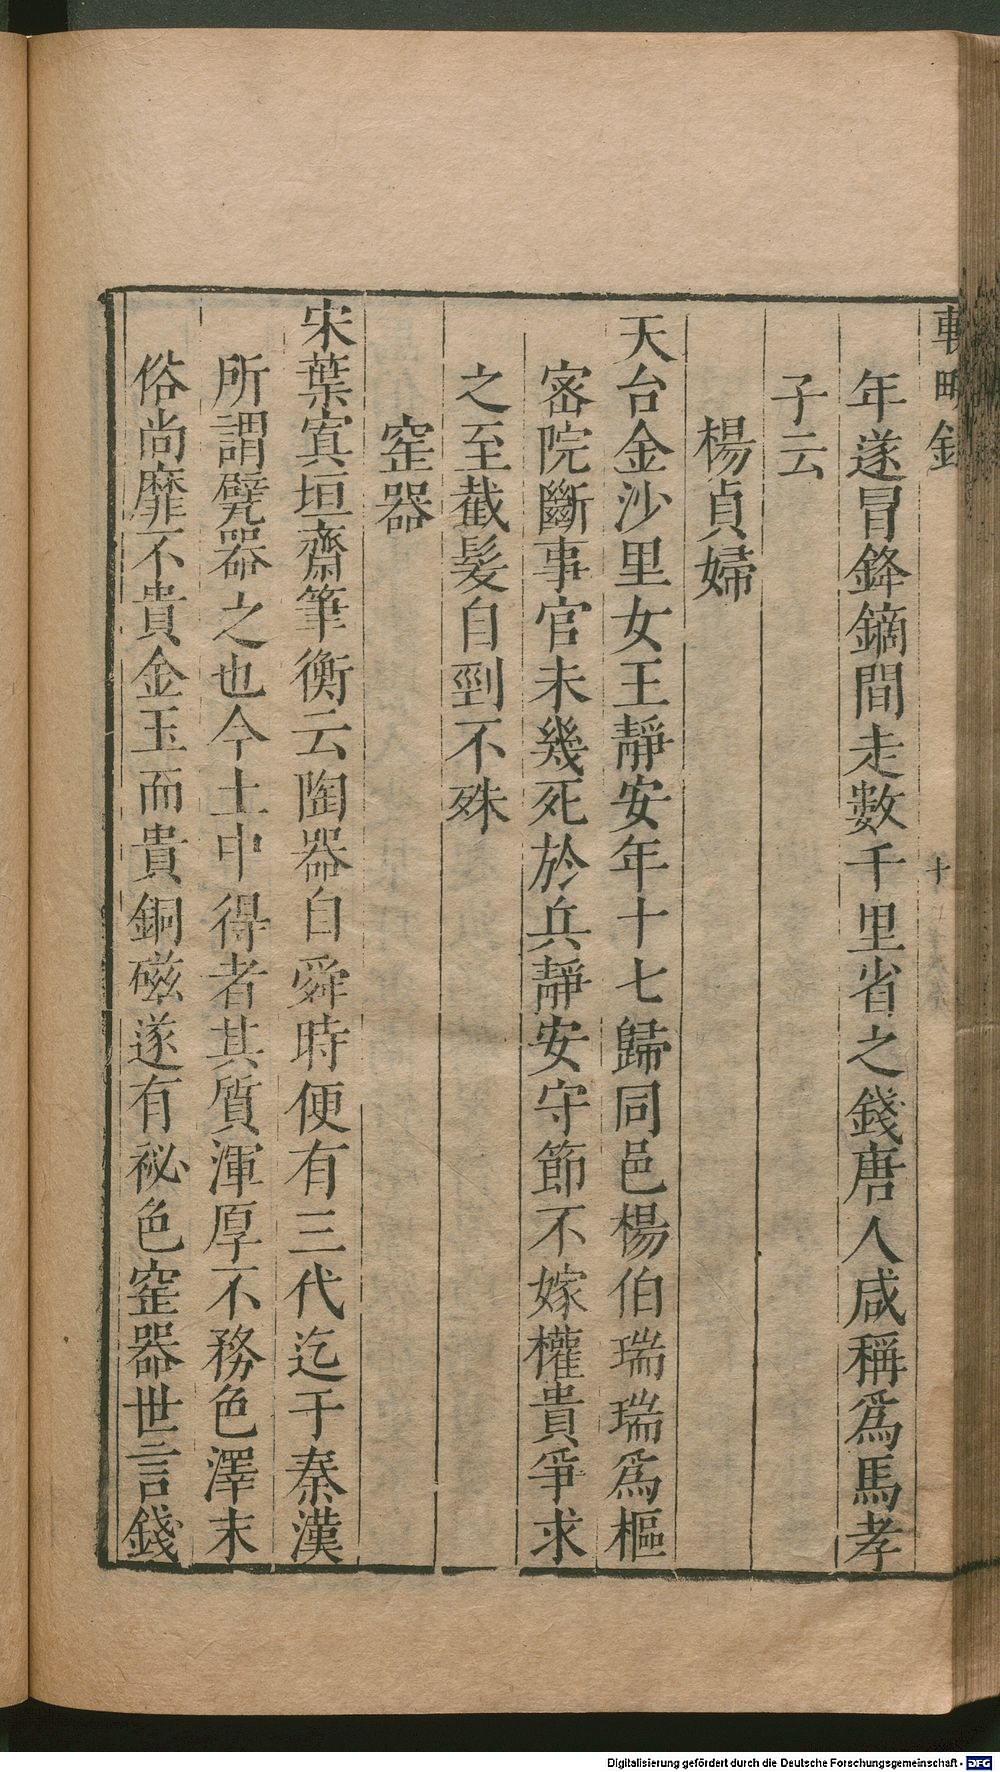 年遂冒鋒鏑間走數千里省之錢唐人咸稱爲馬孝
子云
楊貞婦
天台金沙里女王靜安年十七歸同邑楊伯瑞瑞爲樞
密院斷事官未幾死於兵靜安守節不嫁權貴爭求
之至截髮自剄不殊
窑器
宋葉寘垣齋筆衡云陶器自舜時便有三代迄于秦漢
所謂甓器之也今土中得者其質渾厚不務色澤末
俗尚靡不貴金玉而貴銅磁遂有祕色窑器世言錢
十
Digitalisierung gefördert durch die Deutsche Forschungsgemeinschaft - DFG